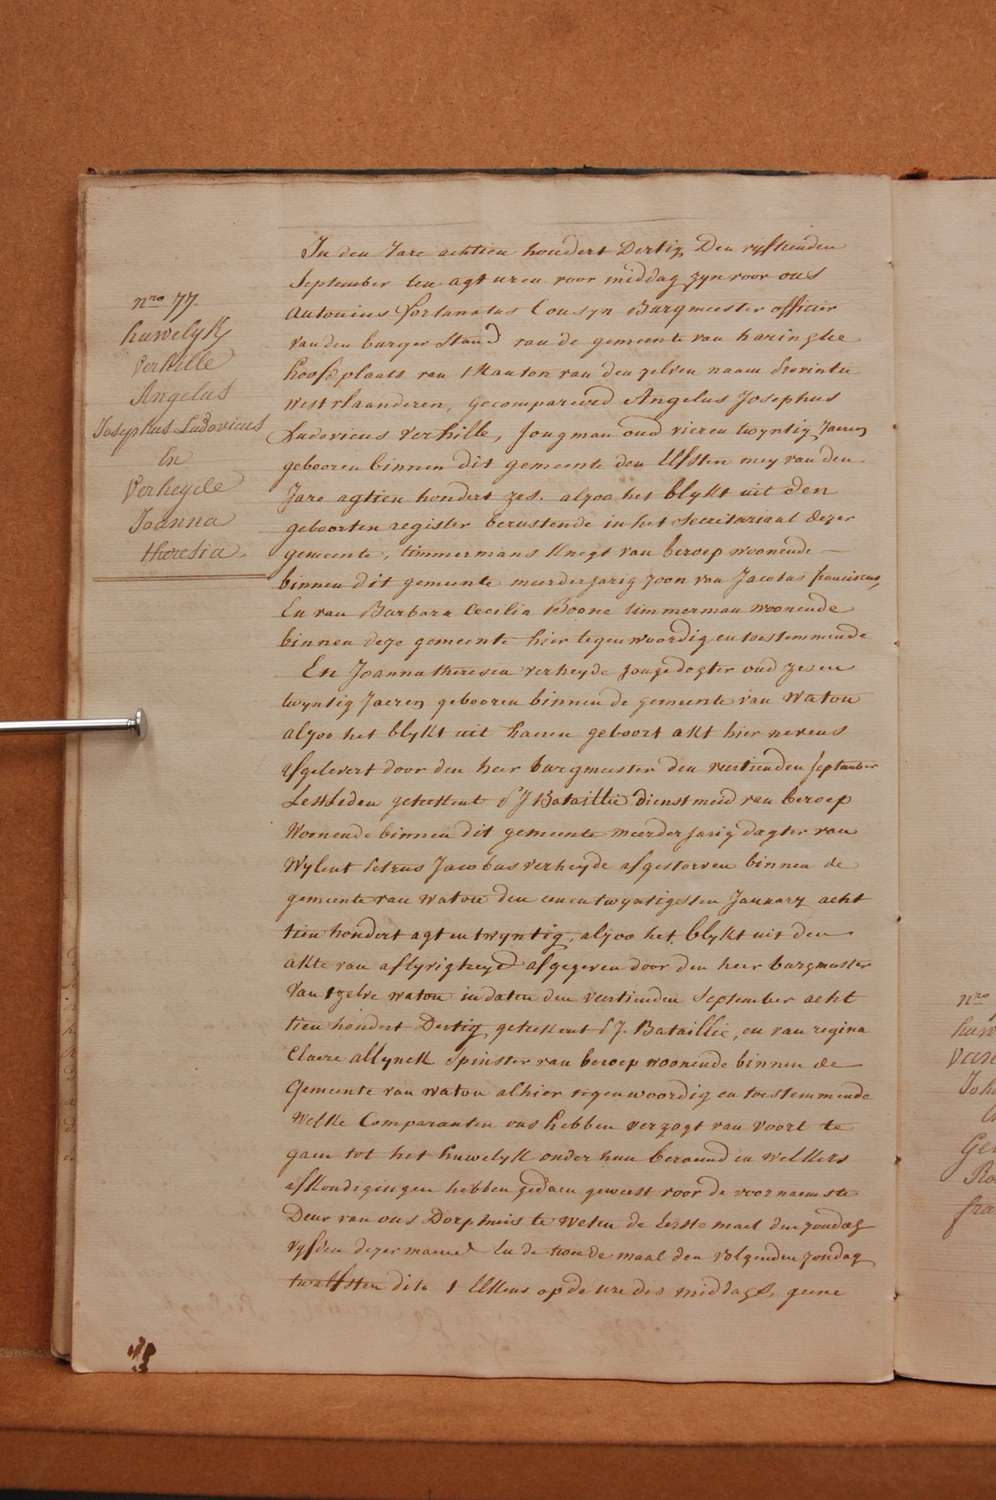 nro 77.
huwelyk
Verhille
Angelus
Josephus Ludovicus
En
Verheyde
Joanna
theresia.
In den Jare achtien hondert Dertig Den vyftienden
September ten agt uren voor middag zyn voor ons
Antonius fortunatus Cousyn Burgmeester officier
van den burger Stand van de gemeente van haringhe
hoofdplaats van t Kanton van den zelven naam Provintie
westvlaanderen, Gecompareerd Angelus Josephus
Ludovicus verhille, Jongman oud vier en twyntig Jaeren
gebooren binnen dit gemeente den Elfsten mey van den
Jare agtien hondert zes. alzoo het blykt uit den
geboorten register berustende in het Secretariaal dezer
gemeente, timmermans Knegt van beroep woonende
binnen dit gemeente meerderjarig zoon van Jacobus franciscus,
En van Barbara Cecilia Boone timmerman woonende
binnen deze gemeente hier tegenwoordig en toestemmende
En Joanna theresia verheyde jongedogter oud zes en
twyntig Jaeren gebooren binnen de gemeente van watou
alzoo het blykt uit haeren geboort akt hier nevens
afgelevert door den heer burgmeester den veertienden september
Lestleden geteekent P J Bataillie dienstmeid van beroep
woonende binnen dit gemeente meerderjarig dogter van
Wylent Petrus Jacobus verheyde afgestorven binnen de
gemeente van watou den eenentwyntigsten January acht
tien hondert agt en twyntig, alzoo het blykt uit den
akte van aflyvigheyd afgegeven door den heer burgmeester
van t zelve watou in daten den veertienden September acht
tien hondert Dertig geteekent P J. Bataillie, en van regina
Claere allynck Spinster van beroep woonende binnen de
Gemeente van watou alhier tegenwoordig en toestemmende
Welke Comparanten ons hebben verzogt van voort te
gaen tot het huwelyk onder hun beraemd en welkers
afkondigingen hebben gedaen geweest voor de voornaemste
Deur van ons Dorphuis te weten de Eerste mael den zondag
vyfden dezer maend En de tweede maal den volgenden zondag
twalfsten dito t Elkens op de ure des middags, geene
nro
huw
Joh
Ge
Ro
fra